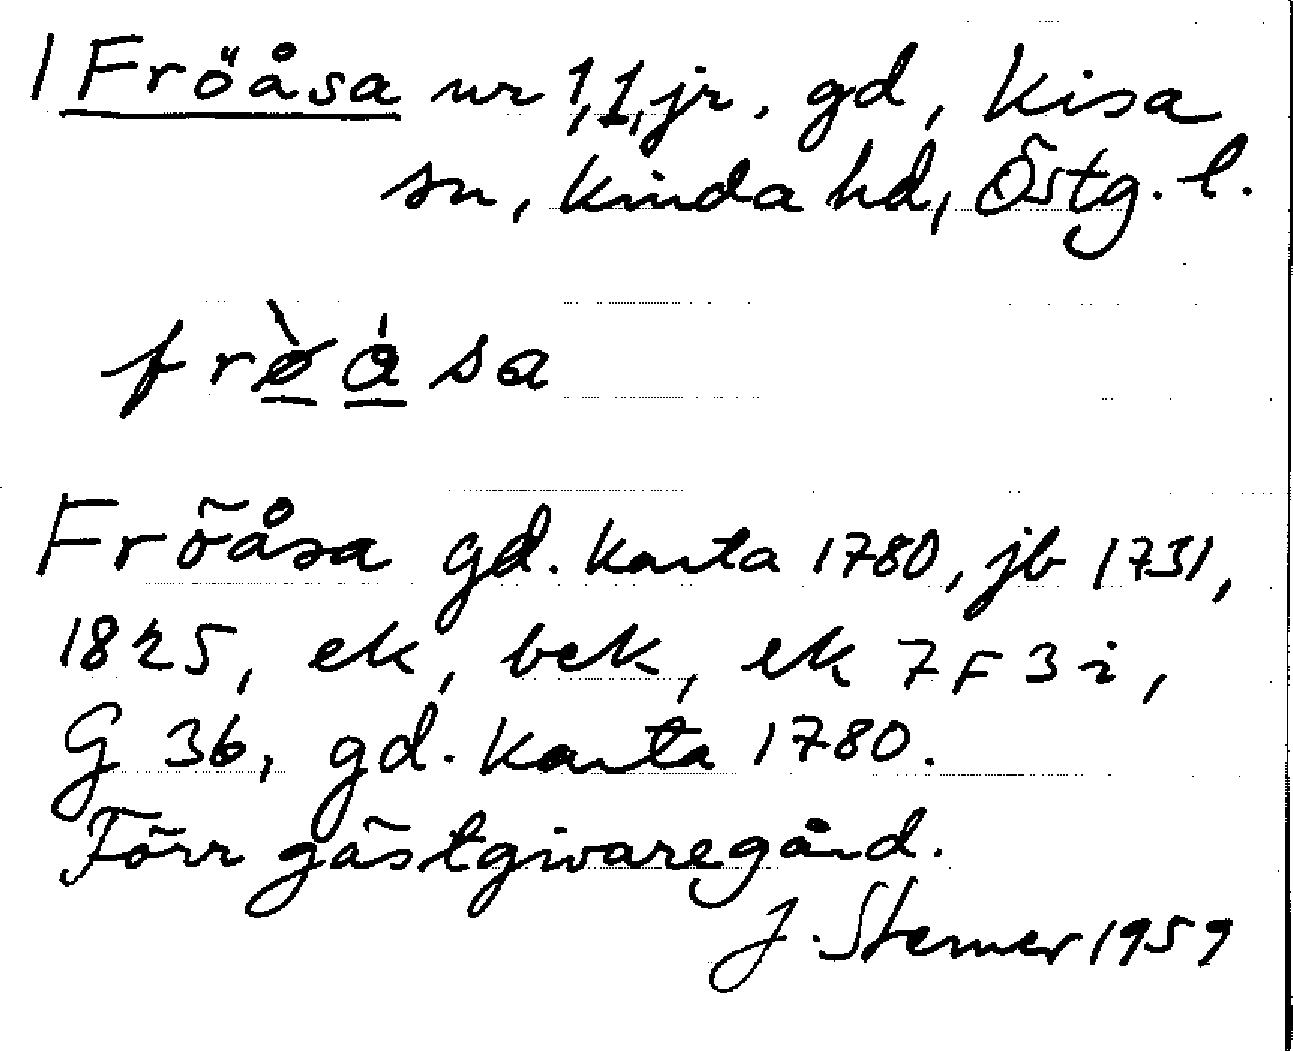 1 Fröåsa nr 1, 1, jr. gd, Kisa
sn, Kinda hd, Östg. l.
frø̀åsa
Fröåsa gd. karta 1780, jb 1731,
1825, ek, bek, ek 7F3i,
G 36, gd. karta 1780.
Förr gästgivaregård.
J. Sterner 1959